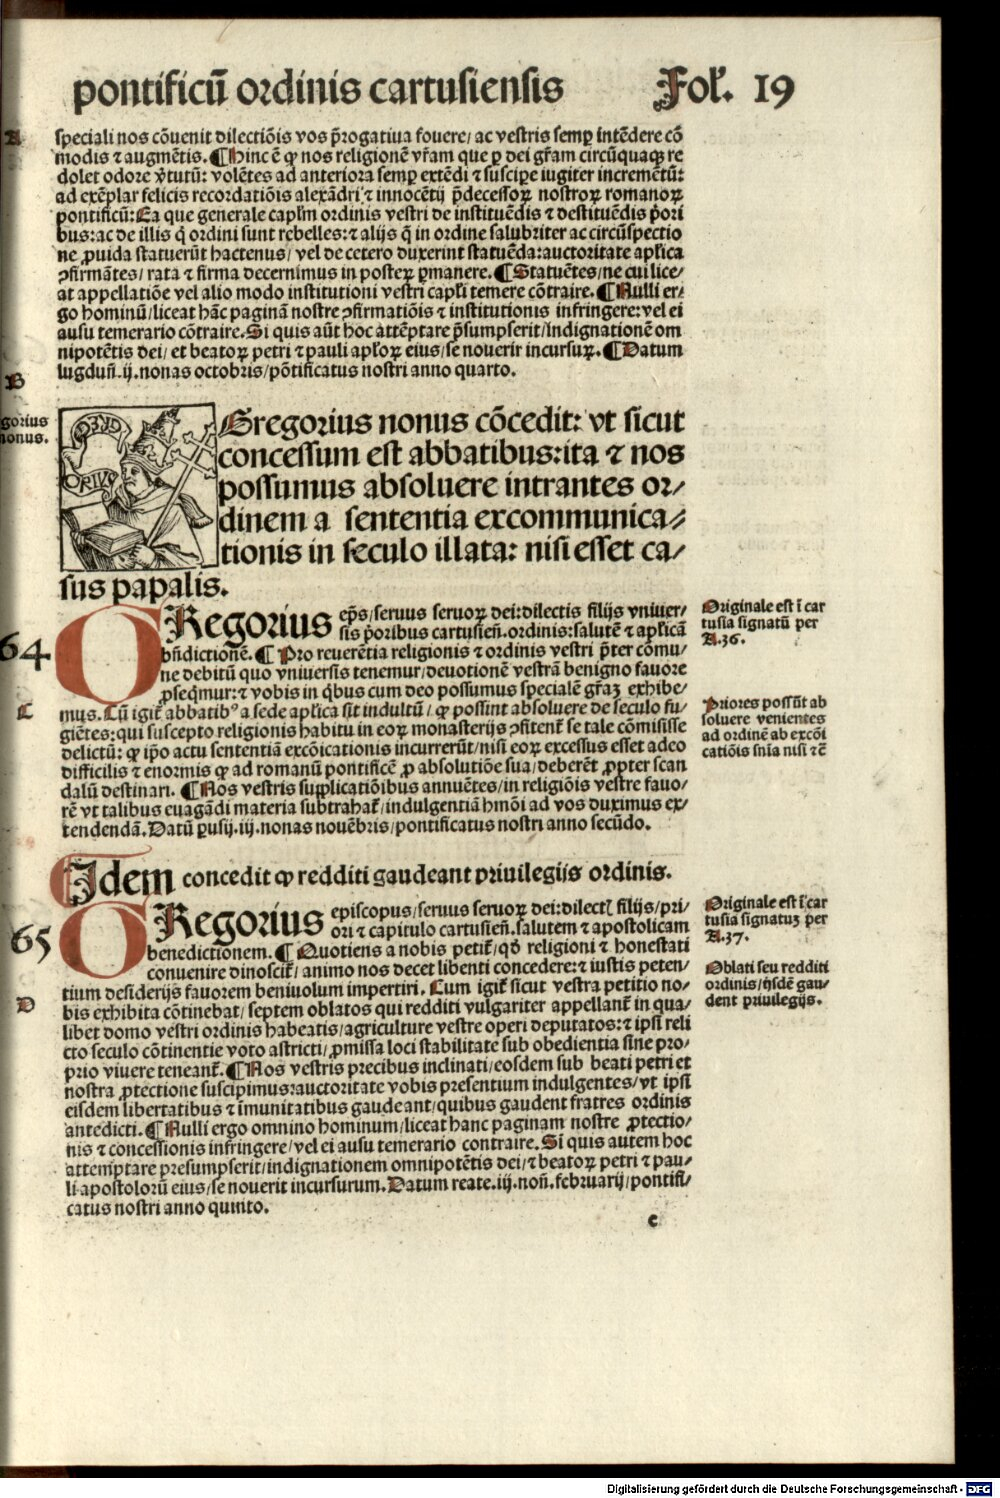 pontificū ordinis cartusiensis Fol. 19
A
speciali nos cōuenit dilectiōis vos p̄rogatiua fouere/ ac vestris semꝑ intēdere cō
modis ⁊ augmētis. ¶ Hinc ē ꝙ nos religionē vr̄am que ꝑ dei gr̄am circūquaqꝫ re
dolet odore v̓tutū: volētes ad anteriora semꝑ extēdi ⁊ suscipe iugiter incremētū:
ad exēplar felicis recordatiōis alexādri/ ⁊ innocētij p̄decessoꝝ nostroꝝ romanoꝝ
pontificū: Ea que generale capl̄m ordinis vestri de instituēdis ⁊ destituēdis p̓ori
bus: ac de illis q̓ ordini sunt rebelles: ⁊ alijs q̓ in ordine salubriter ac circūspectio
ne ꝓuida statuerūt hactenus/ vel de cetero duxerint statuēda: auctoritate ap̄lica
ꝯfirmātes/ rata ⁊ firma decernimus in posteꝝ ꝑmanere. ¶ Statuētes/ ne cui lice/
at appellatiōe vel alio modo institutioni vestri capl̄i temere cōtraire. ¶ Nulli er/
go hominū/ liceat hāc paginā nostre ꝯfirmatiōis ⁊ institutionis infringere: vel ei
ausu temerario cōtraire. Si quis aūt hoc attēptare p̄sumpserit/ indignationē om
nipotētis dei/ et beatoꝝ petri ⁊ pauli apl̄oꝝ eius/ se nouerit incursuꝝ. ¶ Datum
lugduñ. ij. nonas octobris/ pōtificatus nostri anno quarto.
B
gorius
nonus.
GREG
ORIVS
Gregorius nonus cōcedit: vt sicut
concessum est abbatibus: ita ⁊ nos
possumus absoluere intrantes or/
dinem a sententia excommunica/
tionis in seculo illata: nisi esset ca/
sus papalis.
64
GRegorius ep̄s/ seruus seruoꝝ dei: dilectis filijs vniuer/
sis p̓oribus cartusieñ. ordinis: salutē ⁊ ap̄licā
bn̄dictionē. ¶ Pro reuerētia religionis ⁊ ordinis vestri p̄ter cōmu/
ne debitū quo vniuersis tenemur/ deuotionē vestrā benigno fauore
ꝓseq̄mur: ⁊ vobis in q̓bus cum deo possumus specialē gr̄aꝫ exhibe/
mus. Cū igit̄ abbatibꝰ a sede ap̄lica sit indultū/ ꝙ possint absoluere de seculo fu/
giētes: qui suscepto religionis habitu in eoꝝ monasterijs ꝯfitent̄ se tale cōmisisse
delictū: ꝙ ip̄o actu sententiā excōicationis incurrerūt/ nisi eoꝝ excessus esset adeo
difficilis ⁊ enormis ꝙ ad romanū pontificē ꝓ absolutiōe sua/ deberēt ꝓpter scan
dalū destinari. ¶ Nos vestris supplicatiōibus annuētes/ in religiōis vestre fauo/
rē vt talibus euagādi materia subtrahat̄/ indulgentiā hmōi ad vos duximus ex/
tendendā. Datū ꝑusij. iij. nonas nouēbris/ pontificatus nostri anno secūdo.
C
Originale est ī car
tusia signatū per
A. 36.
Priores possūt ab
soluere venientes
ad ordinē ab excōi
catiōis sn̄ia nisi ⁊c̄
Idem concedit ꝙ redditi gaudeant priuilegijs ordinis.
65
GRegorius episcopus/ seruus seruoꝝ dei: dilectꝭ filijs/ pri/
ori ⁊ capitulo cartusieñ. salutem ⁊ apostolicam
benedictionem. ¶ Quotiens a nobis petit̄/ qd̄ religioni ⁊ honestati
conuenire dinoscit̄/ animo nos decet libenti concedere: ⁊ iustis peten/
tium desiderijs fauorem beniuolum impertiri. Cum igit̄ sicut vestra petitio no/
bis exhibita cōtinebat/ septem oblatos qui redditi vulgariter appellant̄ in qua/
libet domo vestri ordinis habeatis/ agriculture vestre operi deputatos: ⁊ ipsi reli
cto seculo cōtinentie voto astricti/ ꝓmissa loci stabilitate sub obedientia sine pro/
prio viuere teneant̄. ¶ Nos vestris precibus inclinati/ eosdem sub beati petri et
nostra ꝓtectione suscipimus: auctoritate vobis presentium indulgentes/ vt ipsi
eisdem libertatibus ⁊ īmunitatibus gaudeant/ quibus gaudent fratres ordinis
antedicti. ¶ Nulli ergo omnino hominum/ liceat hanc paginam nostre ꝓtectio/
nis ⁊ concessionis infringere/ vel ei ausu temerario contraire. Si quis autem hoc
attemptare presumpserit/ indignationem omnipotētis dei/ ⁊ beatoꝝ petri ⁊ pau/
li apostolorū eius/ se nouerit incursurum. Datum reate. iij. noñ. februarij/ pontifi/
catus nostri anno quinto.
D
Originale est ī car
tusia signatuꝫ per
A. 37.
Oblati seu redditi
ordinis/ ijsdē gau/
dent priuilegijs.
c
Digitalisierung gefördert durch die Deutsche Forschungsgemeinschaft - DFG